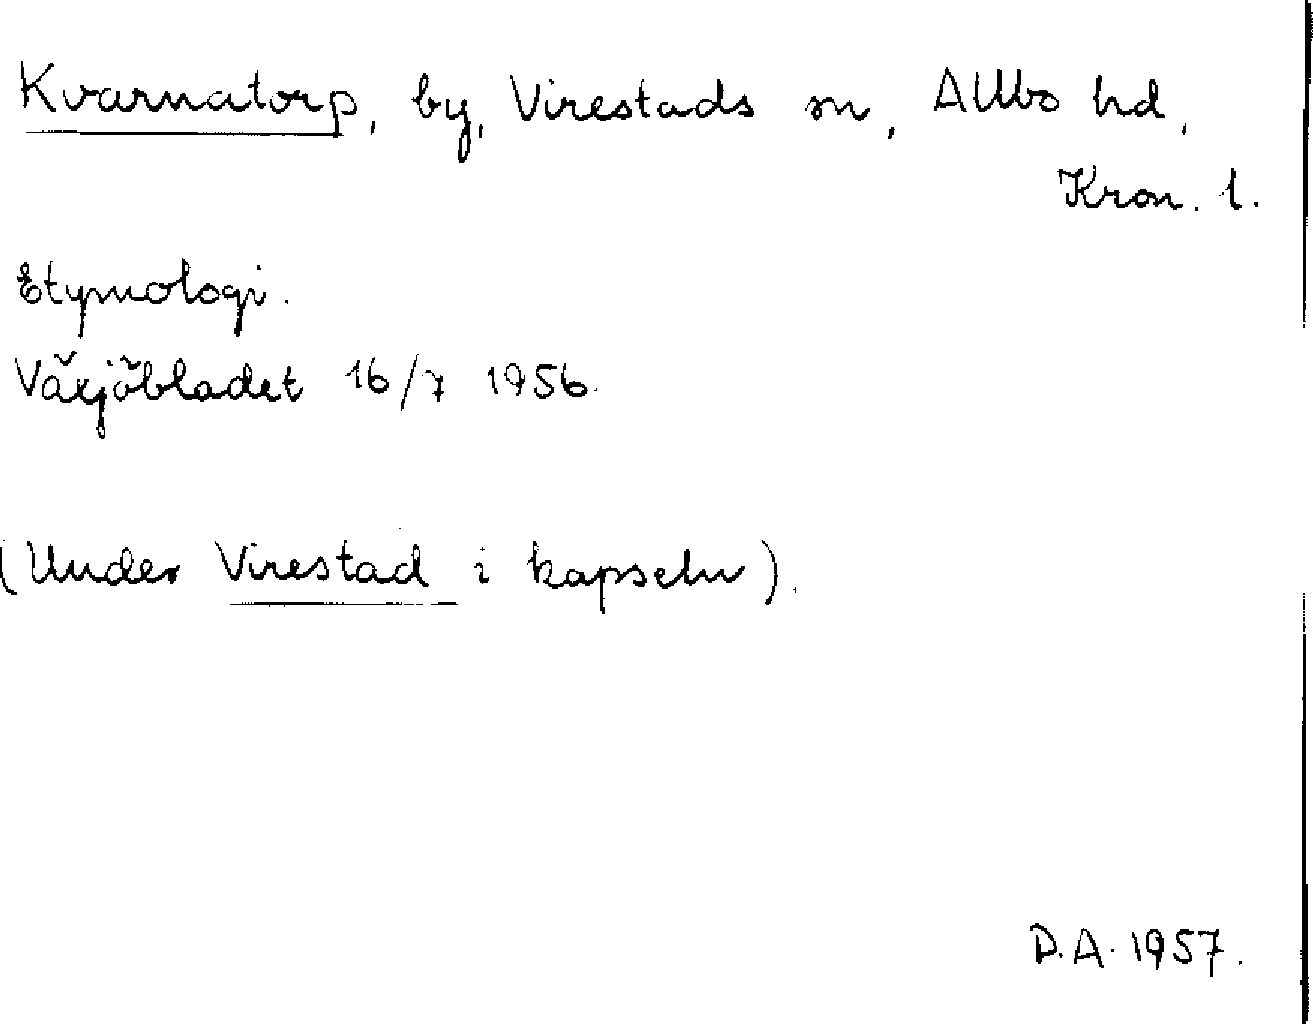 Kvarnatorp, by, Virestads sn, Allbo hd,
Kron. l.
Etymologi.
Växjöbladet 16/7 1956.
(Under Virestad i kapseln).
D.A. 1957.